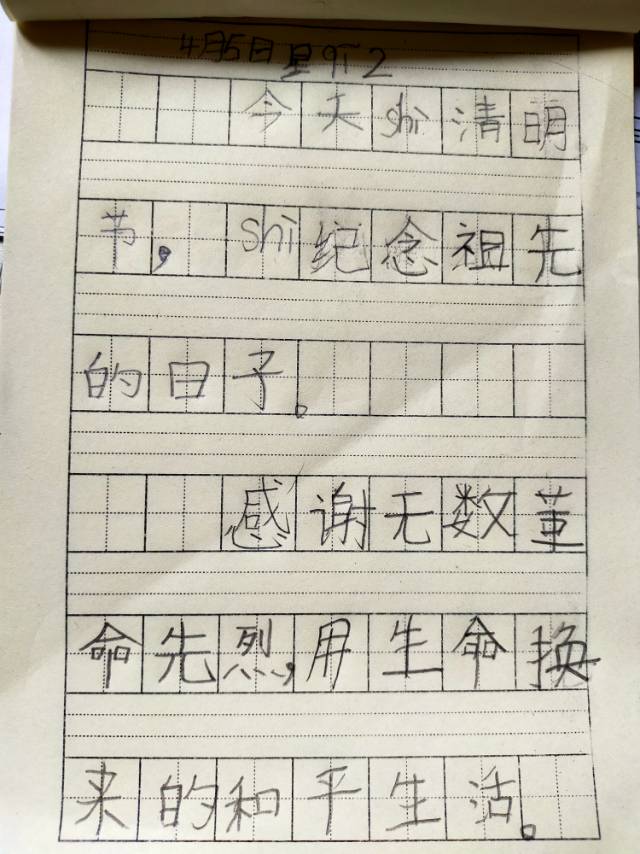 4月5日星qi2
今天shi清明
节，shi纪念祖先
的日子。
感谢无数董
命先烈，用生命换
来的和平生活。